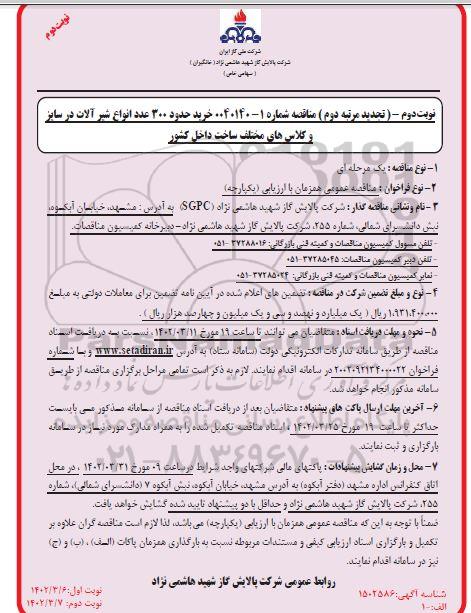 نوبت دوم
شرکت ملی گاز ایران
شرکت پالایش گاز شهید هاشمی نژاد ( خانگیران )
( سهامی خاص )
نوبت دوم – ( تجدید مرتبه دوم ) مناقصه شماره ۱-۰۰۴۰۱۴۰ خرید حدود ۳۰۰ عدد انواع شیر آلات در سایز
و کلاس های مختلف ساخت داخل کشور
۱- نوع مناقصه : یک مرحله ای
۲- نوع فراخوان : مناقصه عمومی همزمان با ارزیابی (یکپارچه)
۳- نام ونشانی مناقصه گذار : شرکت پالایش گاز شهید هاشمی نژاد (SGPC) به آدرس : مشهد، خیابان آبکوه،
نبش دانشسرای شمالی، شماره ۲۵۵، شرکت پالایش گاز شهید هاشمی نژاد – دبیرخانه کمیسیون مناقصات.
- تلفن مسوول کمیسیون مناقصات و کمیته فنی بازرگانی: ۳۷۲۸۸۰۱۶-۰۵۱
- تلفن دبیر کمیسیون مناقصات: ۳۷۲۸۵۰۴۵-۰۵۱
- نمابر کمیسیون مناقصات و کمیته فنی بازرگانی: ۳۷۲۸۵۰۲۴-۰۵۱
۴- نوع و مبلغ تضمین شرکت در مناقصه : تضمین های اعلام شده در آیین نامه تضمین برای معاملات دولتی به مبلغ
۱.۹۳۱.۴۰۰.۰۰۰ ریال ( یک میلیارد و نهصد و سی و یک میلیون و چهارصد هزار ریال )
۵- نحوه و مهلت دریافت اسناد : متقاضیان می توانند تا ساعت ۱۹ مورخ ۱۴۰۲/۰۳/۱۱ ، نسبت به دریافت اسناد
مناقصه از طریق سامانه تدارکات الکترونیکی دولت (سامانه ستاد) به آدرس www.setadiran.ir و با شماره
فراخوان ۲۰۰۲۰۹۲۱۳۴۰۰۰۰۲۲ در سامانه اقدام نمایند. لازم به ذکر است تمامی مراحل برگزاری مناقصه از طریق
سامانه مذکور انجام خواهد شد.
۶- آخرین مهلت ارسال پاکت های پیشنهاد : متقاضیان بعد از دریافت اسناد مناقصه از سامانه مذکور می بایست
حداکثر تا ساعت ۱۹ مورخ ۱۴۰۲/۰۳/۲۵ ، اسناد مناقصه تکمیل شده را به همراه مدارک مورد نیاز در سامانه
بارگزاری و ثبت نمایند.
۷- محل و زمان گشایش پیشنهادات : پاکتهای مالی شرکتهای واجد شرایط درساعت ۰۹ مورخ ۱۴۰۲/۰۳/۳۱ ، در محل
اتاق کنفرانس اداره مشهد (دفتر آبکوه) به آدرس مشهد، خیابان آبکوه، نبش آبکوه ۷ (دانشسرای شمالی)، شماره
۲۵۵، شرکت پالایش گاز شهید هاشمی نژاد و حداقل با دو پیشنهاد تایید شده گشایش خواهد یافت.
ضمناً با توجه به این که مناقصه عمومی همزمان با ارزیابی (یکپارچه) می‌باشد، لذا لازم است مناقصه گران علاوه بر
تکمیل و بارگزاری اسناد ارزیابی کیفی و مستندات مربوطه نسبت به بارگذاری همزمان پاکات (الف) ، (ب) و (ج)
نیز در سامانه اقدام نمایند.
روابط عمومی شرکت پالایش گاز شهید هاشمی نژاد
شناسه آگهی: ۱۵۰۲۵۸۶
الف: ۱۰
نوبت اول: ۱۴۰۲/۳/۶
نوبت دوم: ۱۴۰۲/۳/۷
۰۲۱-۸۸۳۴۹۶۷۰-۵